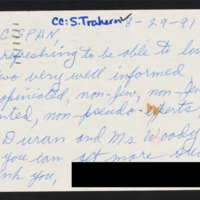 CC: S. Trahern 8-29-91
C-SPAN
refreshing to be able to lis
so very well informed,
opinionated, non-few, non-few
nted, non-pseudo-experts
Duran and Ms. Woody
you can get more
nk you,